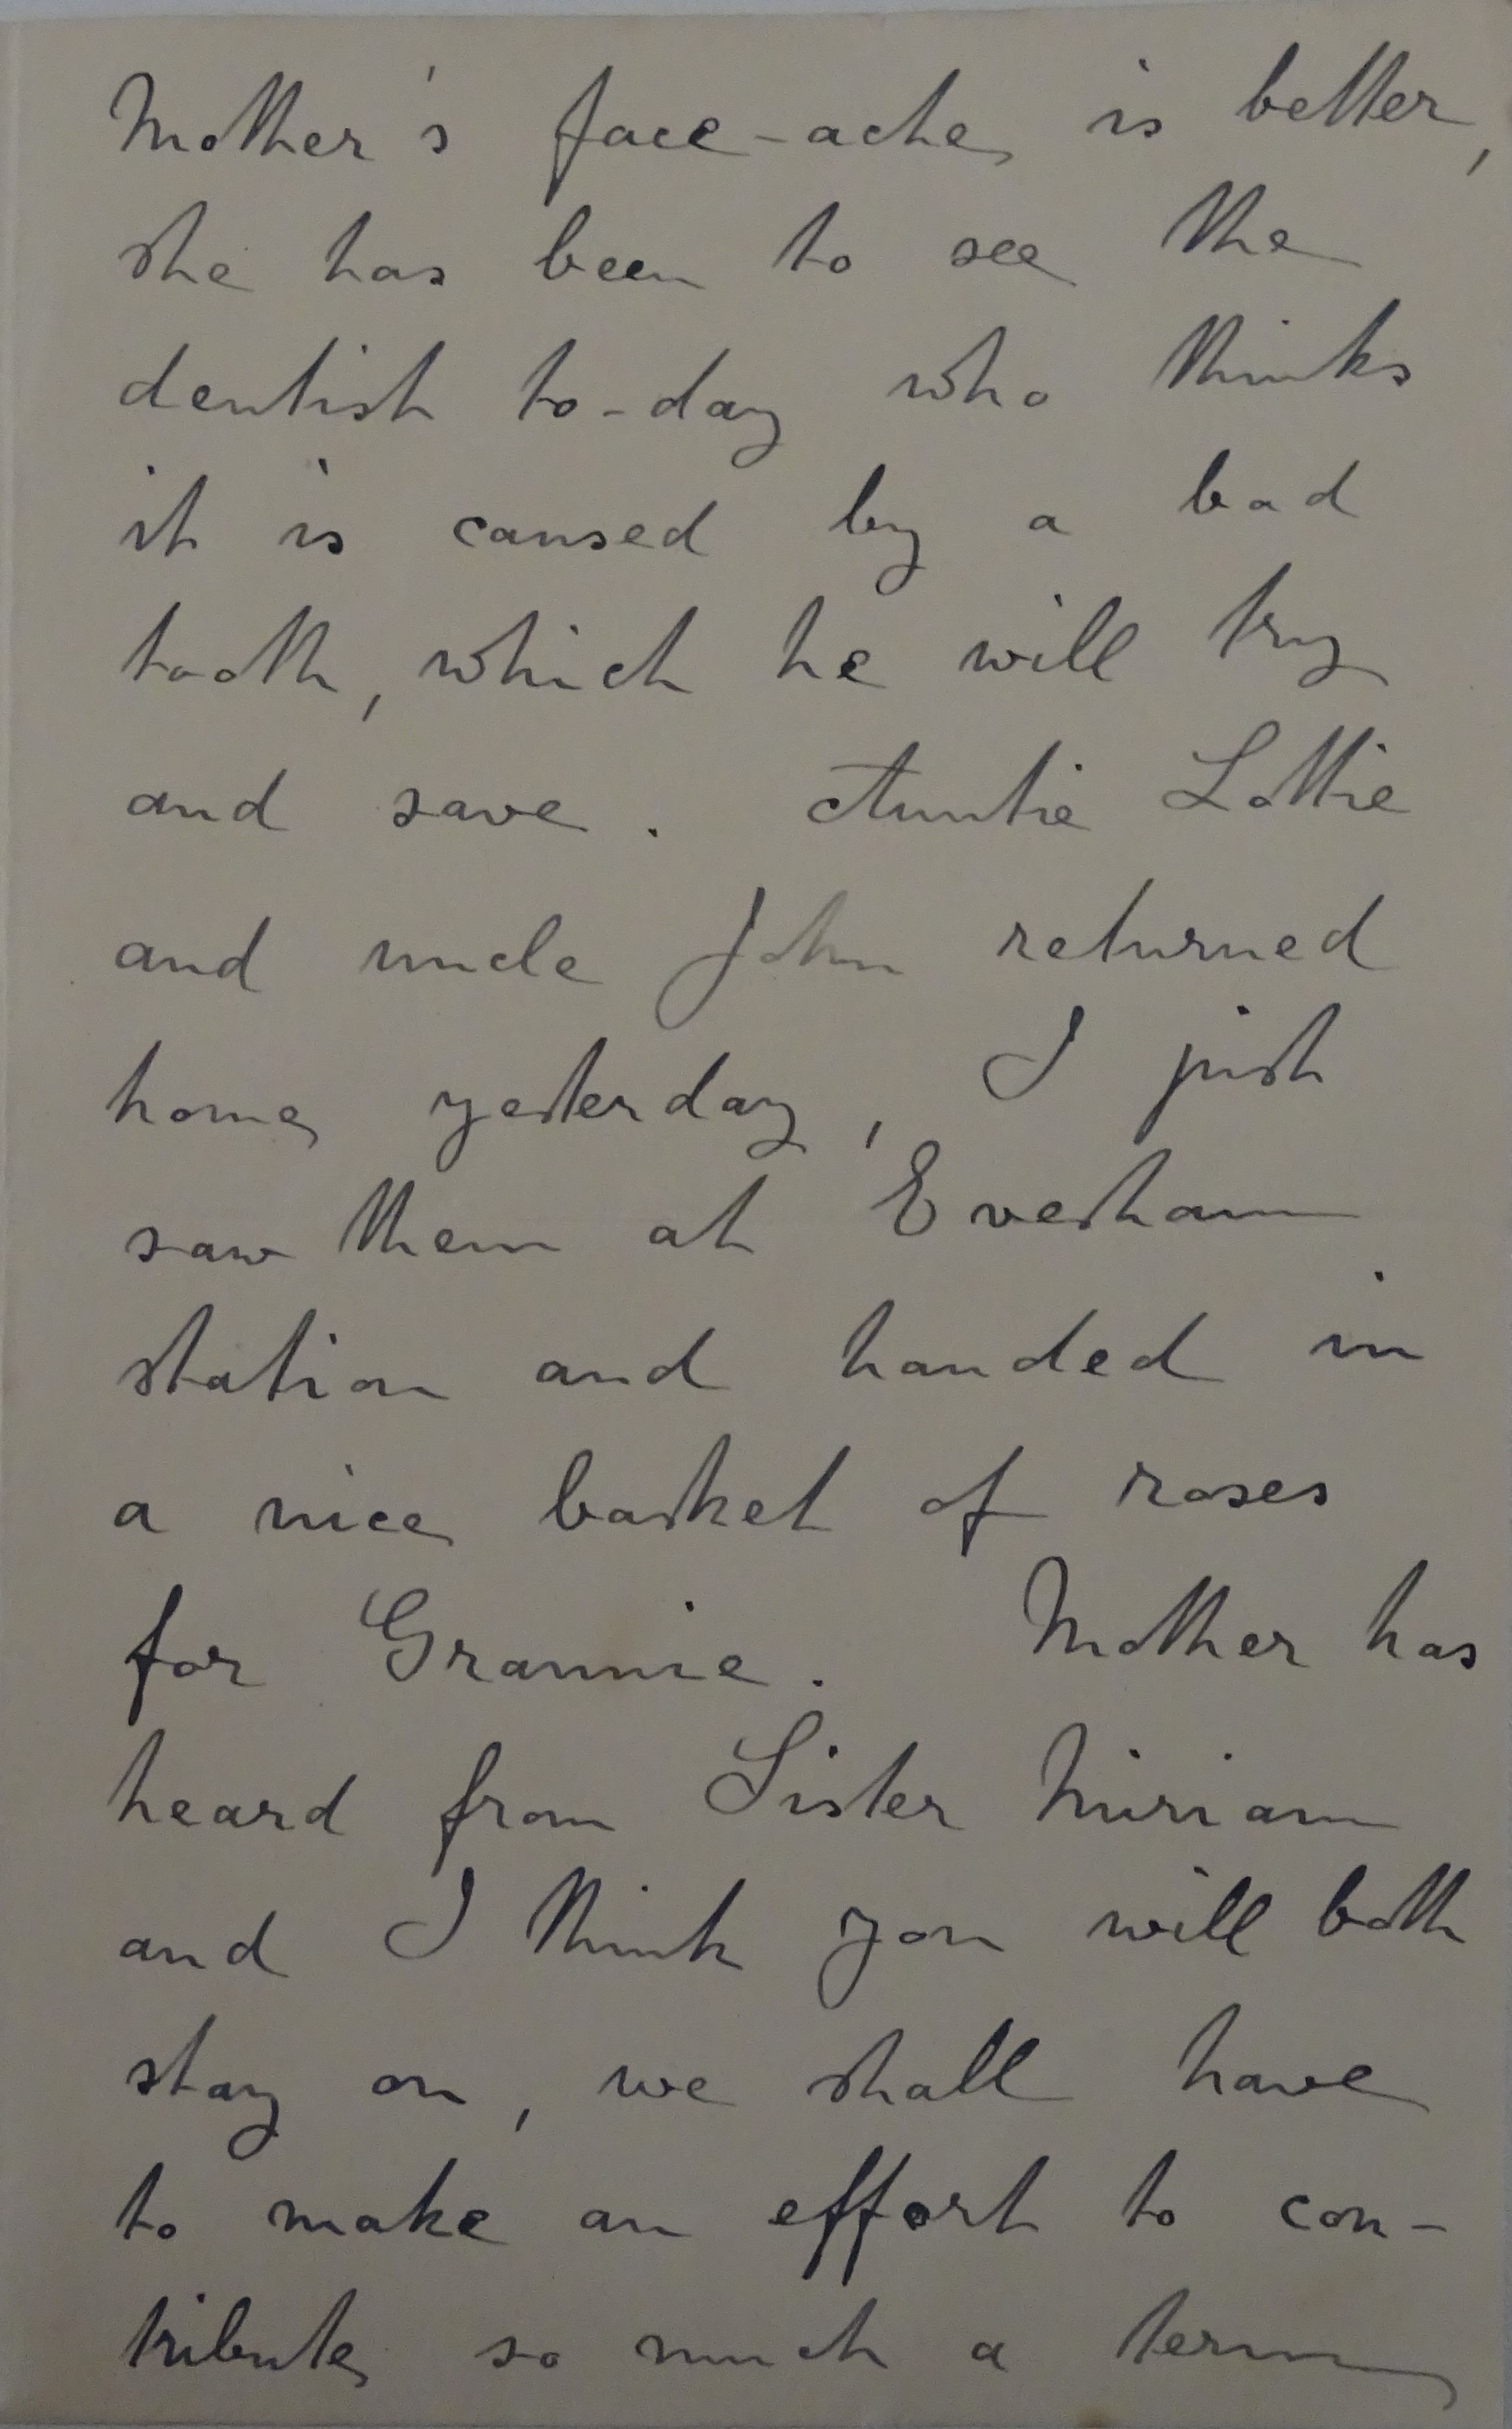 Mother's face-ache is better,
she has been to see the
dentist to-day who thinks
it is caused by a bad
tooth, which he will try
and save. Auntie Lottie
and uncle John returned
home yesterday, I just
saw them at Evesham
station and handed in
a nice basket of roses
for Grannie. Mother has
heard from Sister Miriam
and I think you will both
stay on, we shall have
to make an effort to con-
tribute so much a term